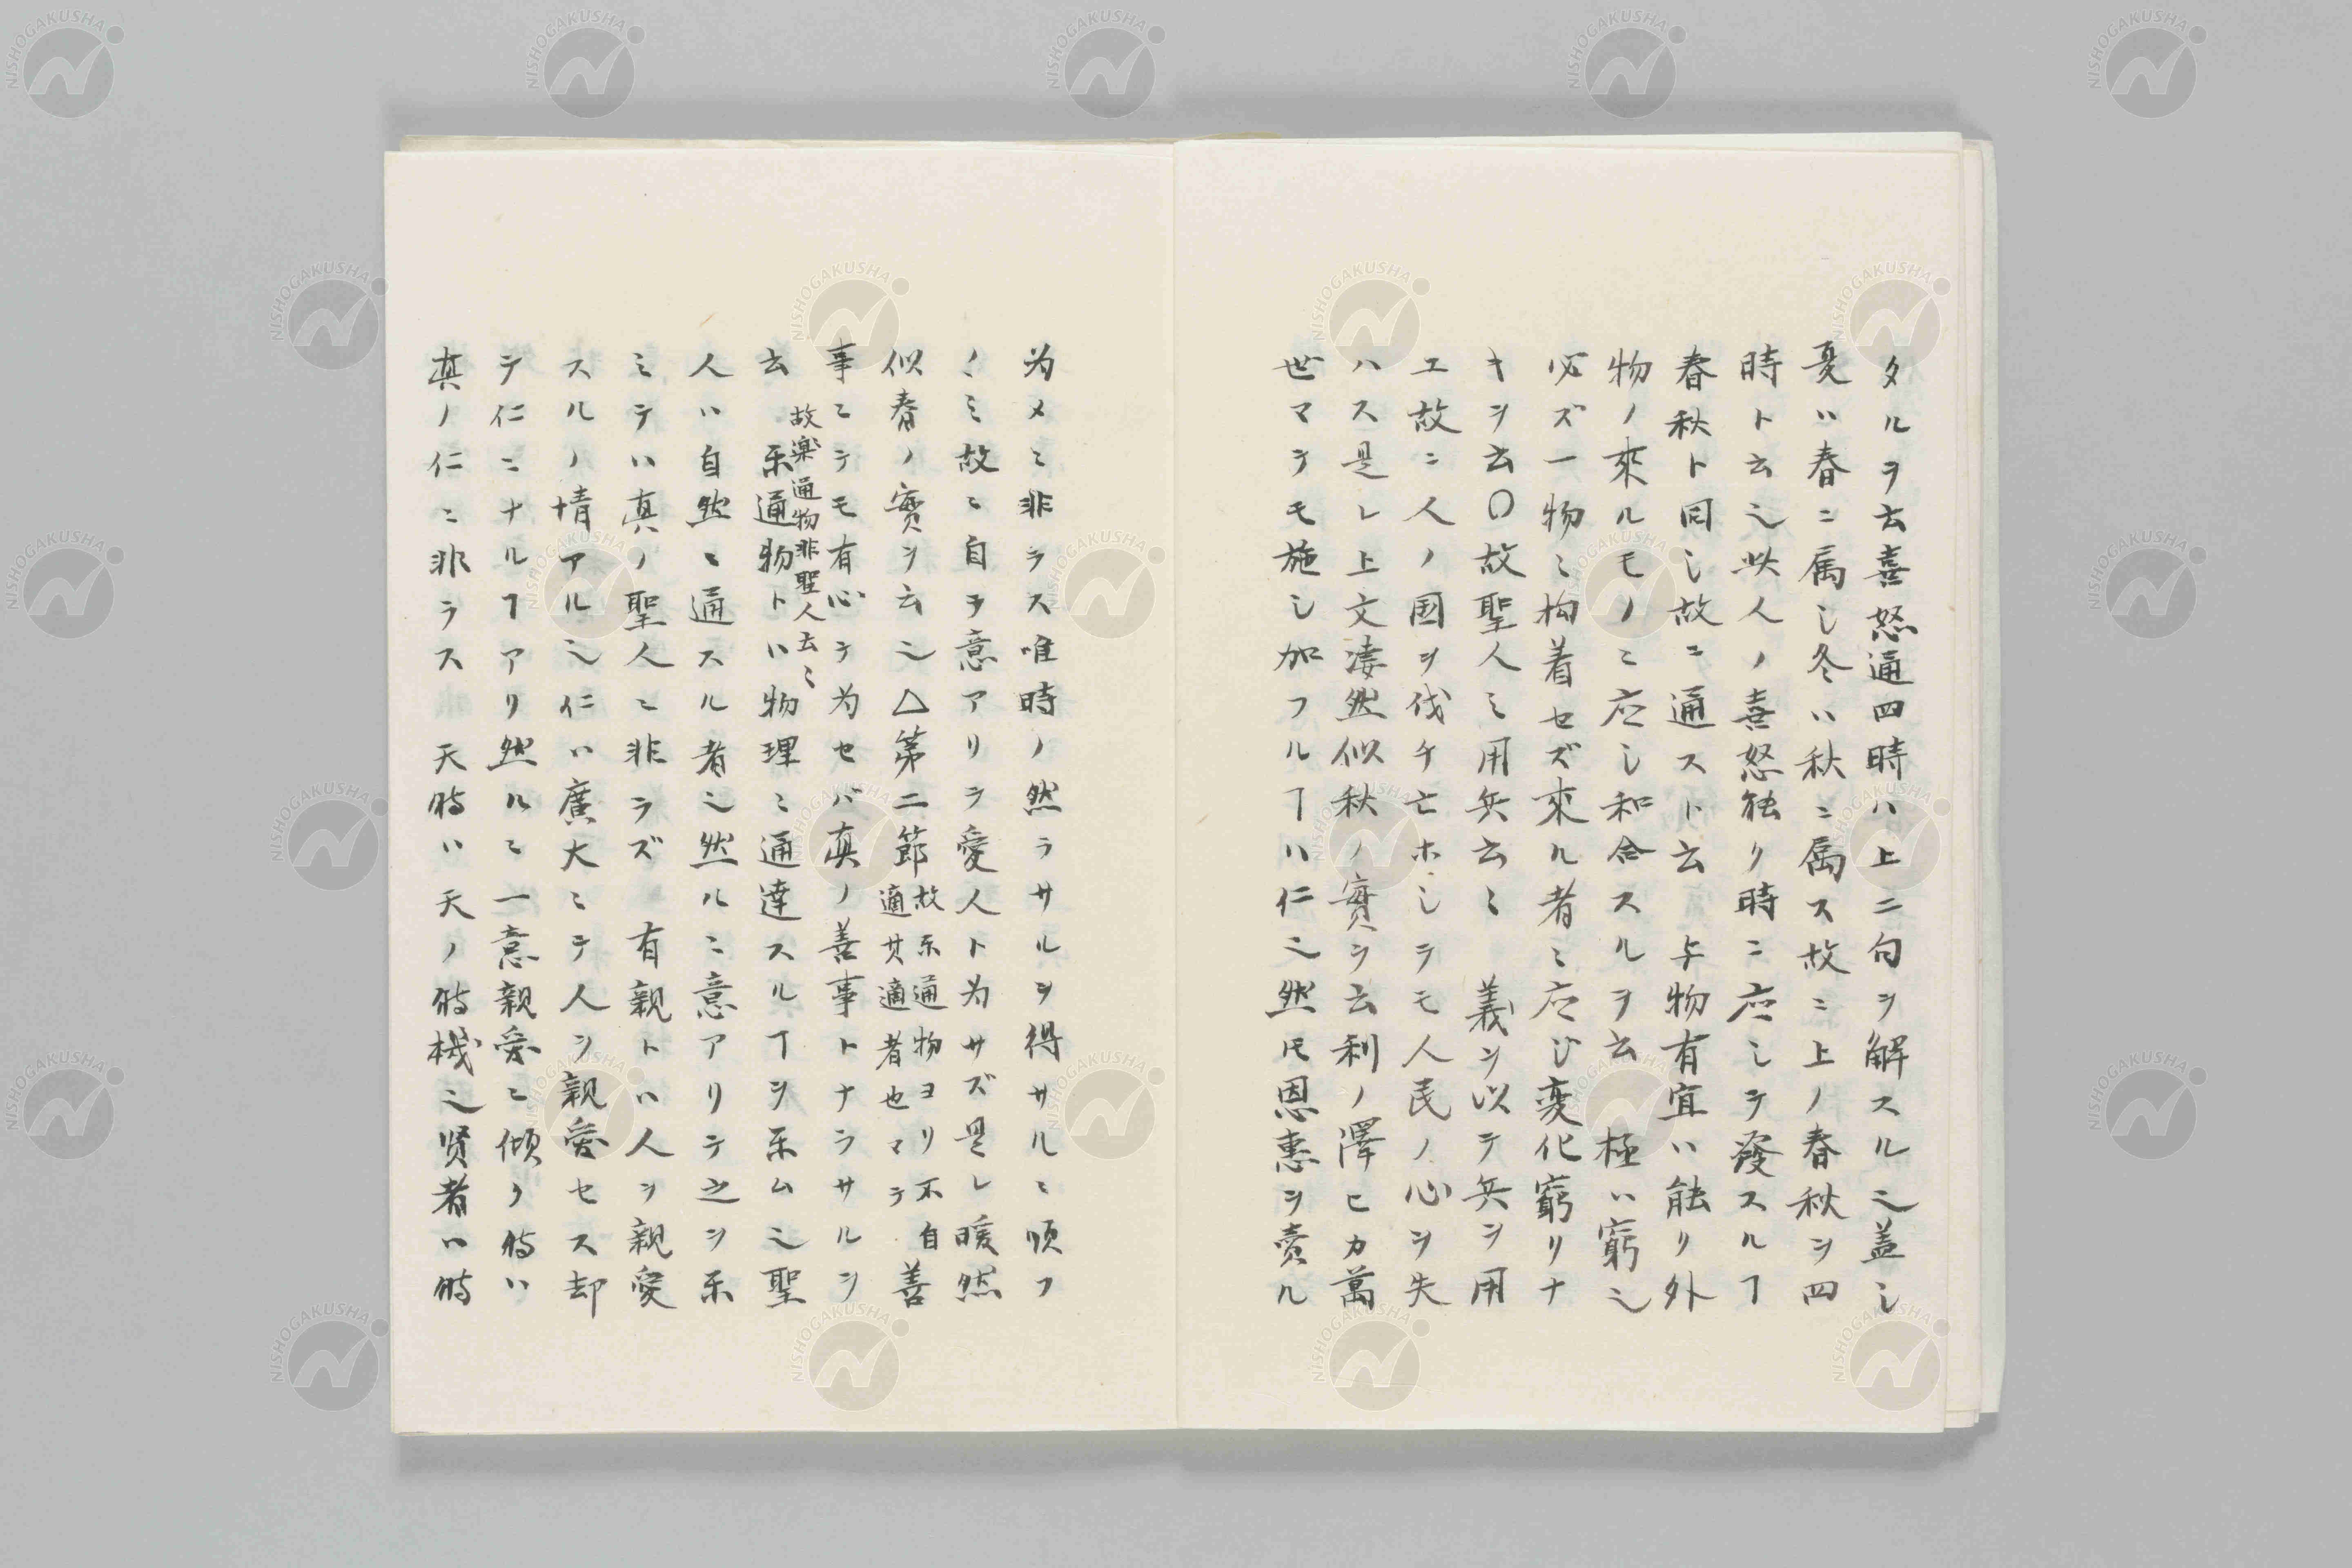 タルヲ云喜怒通四時ハ上ニ句ヲ解スル之蓋シ
夏ハ春ニ属シ冬ハ秋ニ属ス故ニ上ノ春秋ヲ四
時ト云之此人ノ喜怒能ク時ニ应シテ發スルヿ
春秋ト同シ故ニ通スト云 与物有宜ハ能リ外
物ノ來ルモノニ应シ和合スルヲ云 極ハ窮之
必ズ一物ミ拘着セズ來ル者ミ应ジ変化窮リナ
キヲ云〇故聖人ミ用兵云〻 義ヲ以テ兵ヲ用
エ故ニ人ノ国ヲ伐チ亡ホシラモ人民ノ心ヲ失
ハス是レ上文凄然似秋ノ實ヲ云利ノ澤ヒカ萬
世マテモ施シ加フルヿハ仁之然𪜈恩惠ヲ賣ル
为メミ非ラス唯時ノ然ラサルヲ得サルミ順フ
ノミ故ミ自ヲ意アリラ愛人ト为サズ是レ暖然
似春ノ實ヲ云之△第二節故乐通物ヨリ不自適其適者也マテ 善
事ミテモ有心テ为セバ真ノ善事トナラサルヲ
云 故楽通物非聖人云〻
乐通物トハ物理ミ通達スルヿヲ乐ム之聖
人ハ自然ミ通スル者之然ルニ意アリテ之ヲ乐
ミテハ真ノ聖人ミ非ラズ 有親トハ人ヲ親愛
スルノ情アル之仁ハ廣大ミテ人ヲ親愛セス却
テ仁ニナルヿアリ然ルミ一意親愛ミ傾ク時ハ
真ノ仁ニ非ラス 天時ハ天ノ時機之賢者ハ時